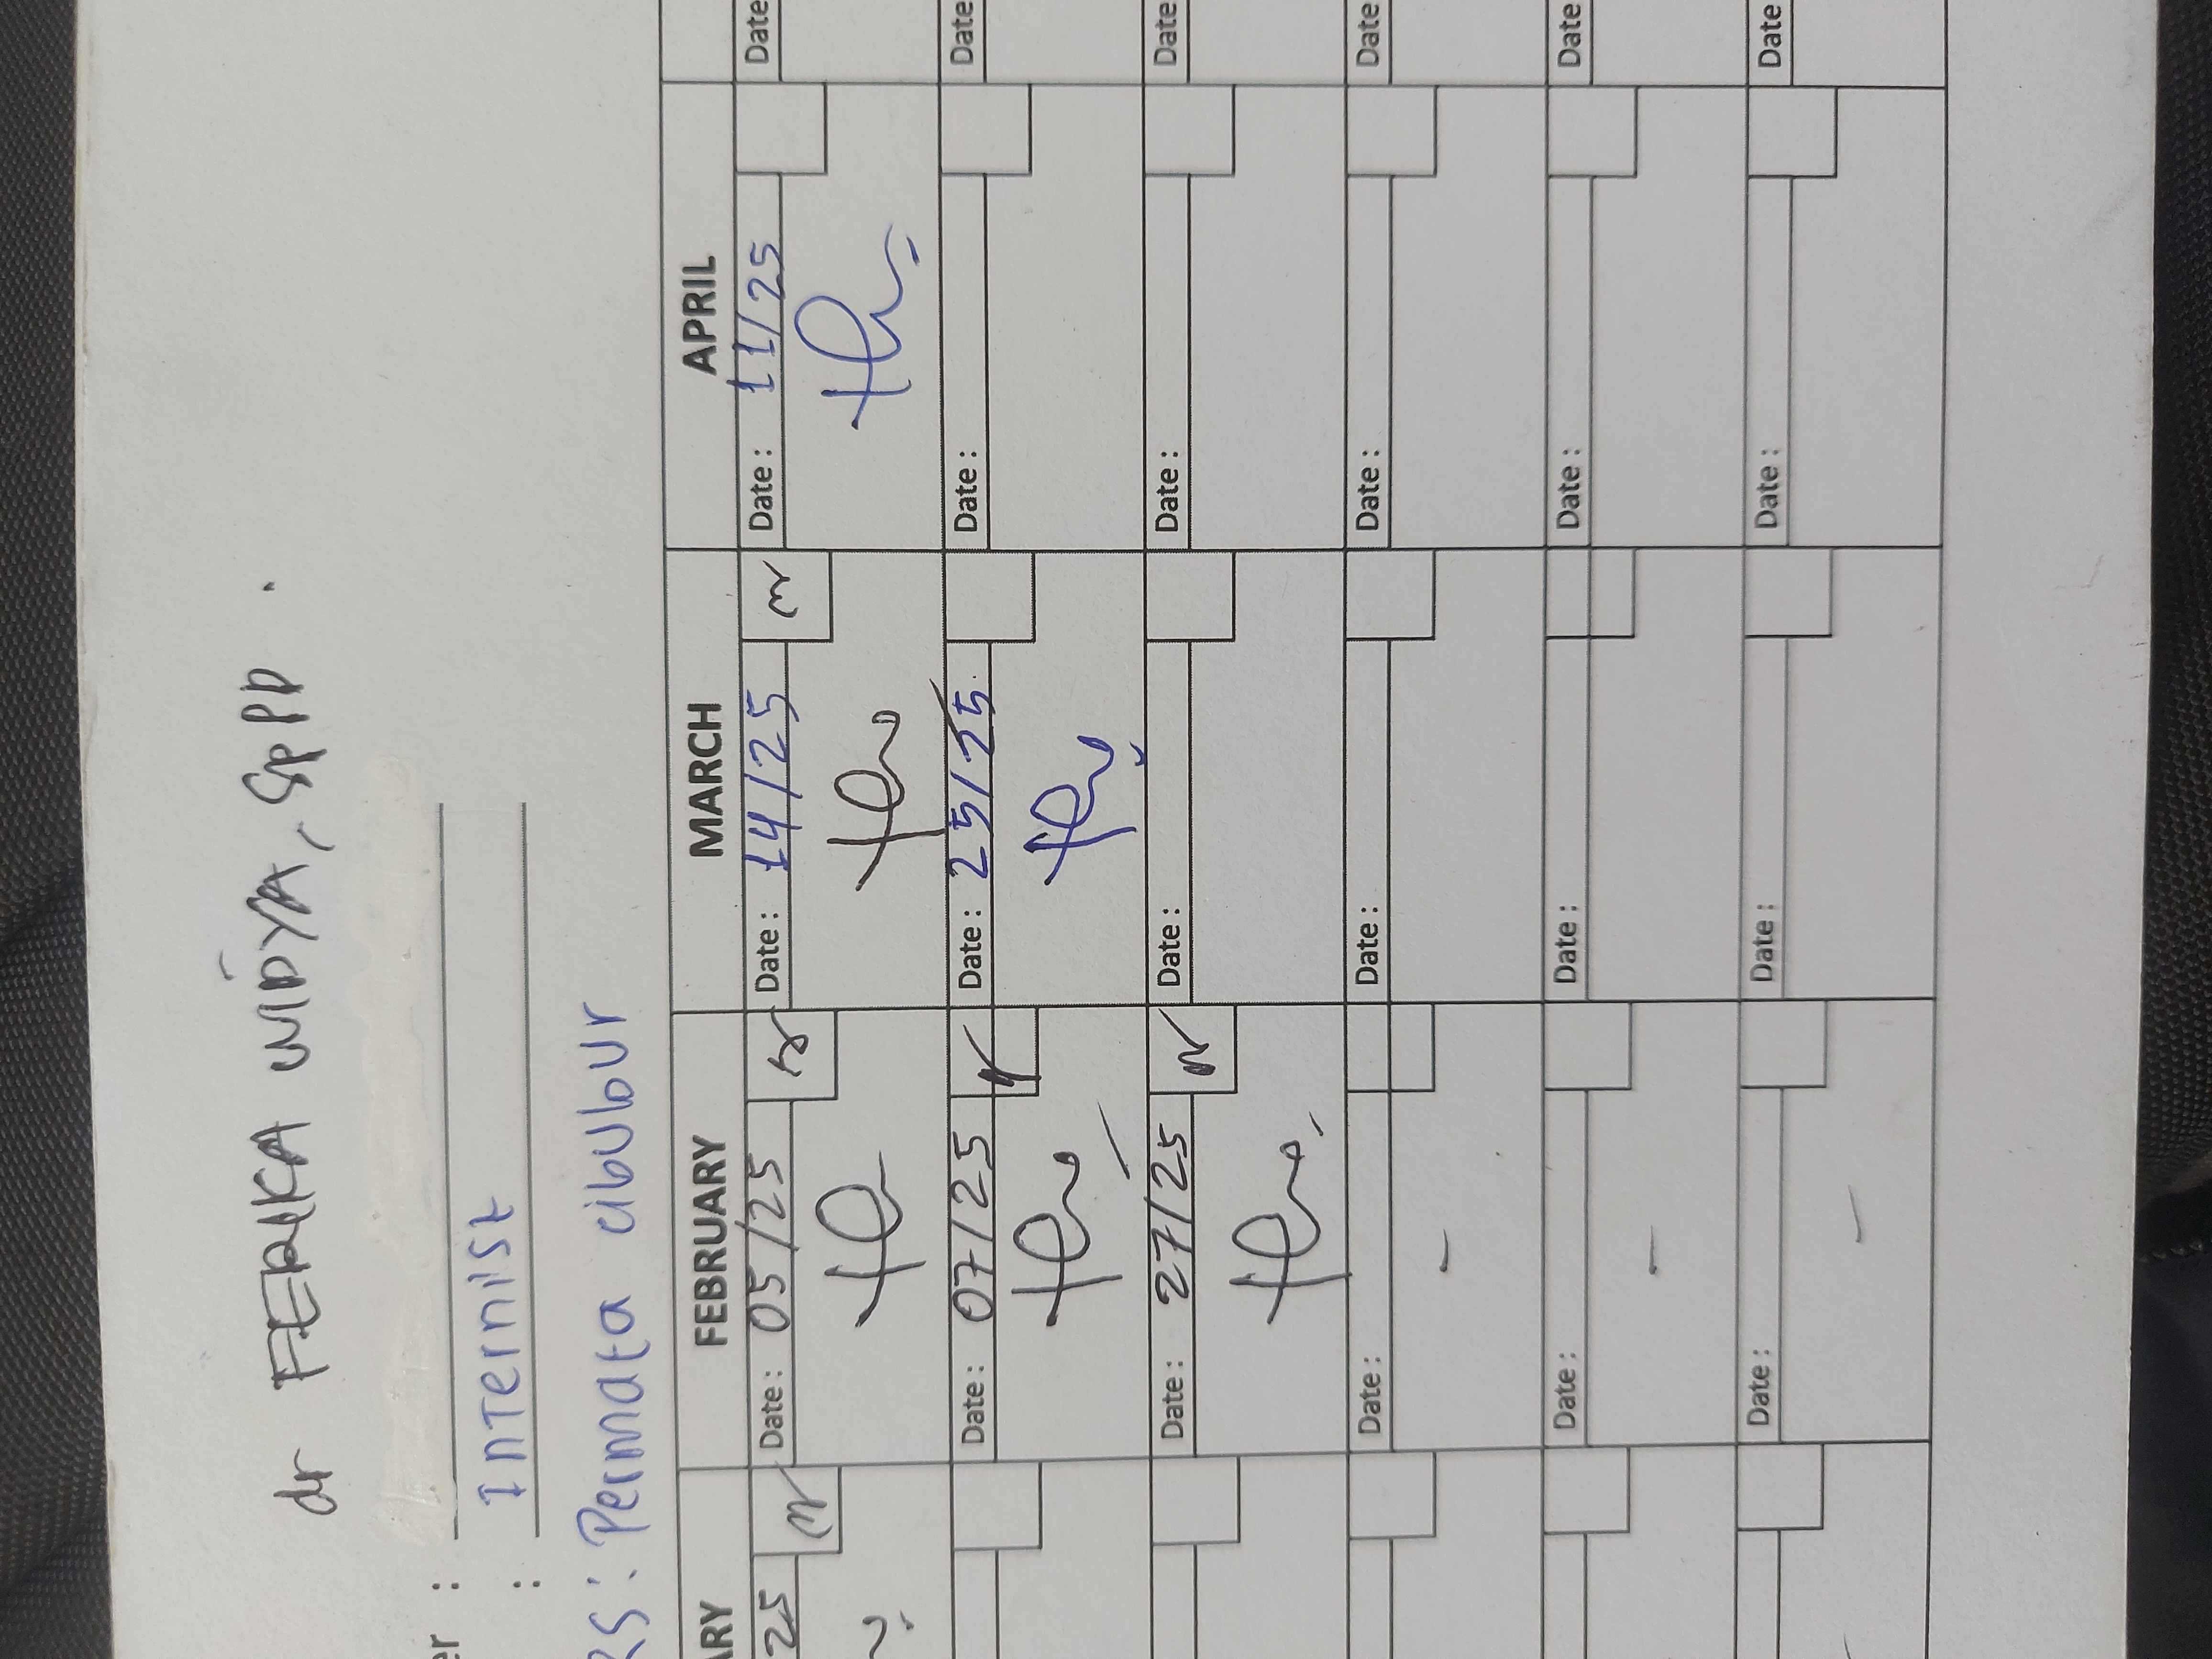 dr FERIKA WIDYA, SpPD.
er :
: Internist
RS: Permata cibubur
ARY FEBRUARY MARCH APRIL
25 Date : 05/25 Date : 14/25 Date : 11/25 Date
Date : 07/25 Date : 25/25 Date : Date
Date : 27/25 Date : Date : Date
Date : Date : Date : Date
Date : Date : Date : Date
Date : Date : Date : Date